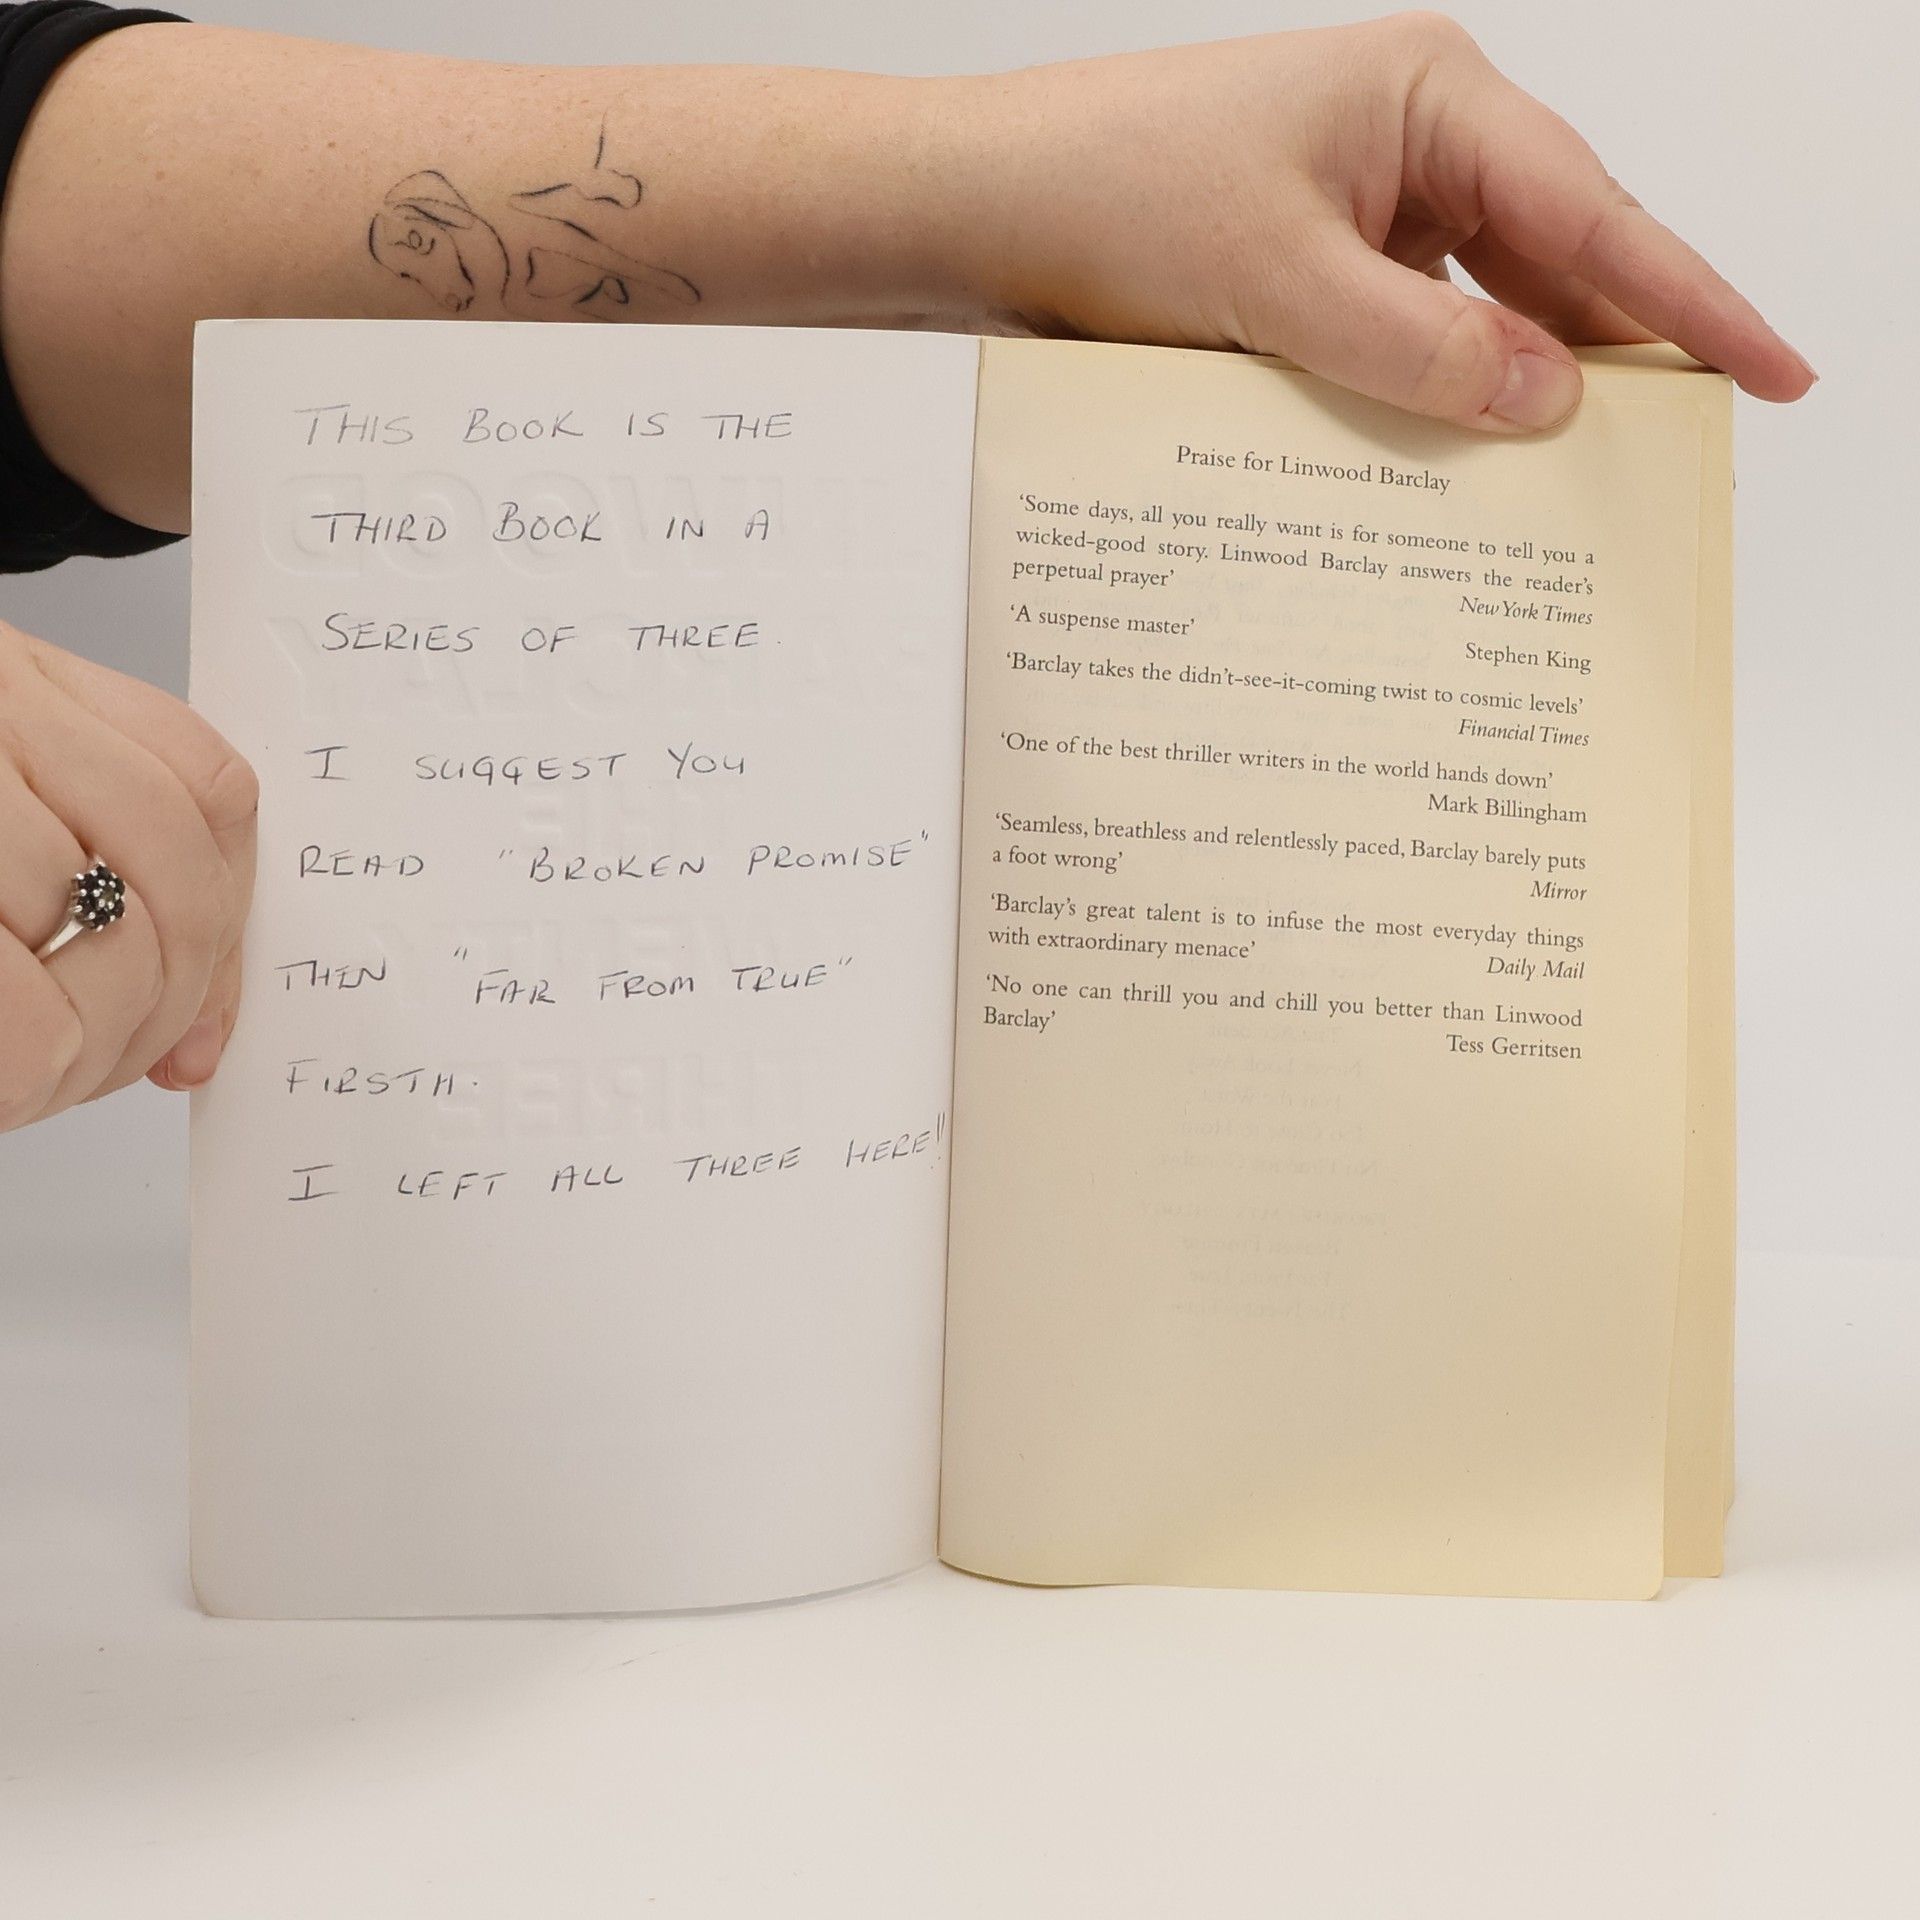 THIS BOOK IS THE
THIRD BOOK IN A
SERIES OF THREE.
I SUGGEST YOU
READ "BROKEN PROMISE"
THEN "FAR FROM TRUE"
I LEFT ALL THREE HERE!!
Praise for Linwood Barclay
‘Some days, all you really want is for someone to tell you a
wicked-good story. Linwood Barclay answers the reader’s
perpetual prayer’
New York Times
‘A suspense master’
Stephen King
‘Barclay takes the didn’t-see-it-coming twist to cosmic levels’
Financial Times
‘One of the best thriller writers in the world hands down’
Mark Billingham
‘Seamless, breathless and relentlessly paced, Barclay barely puts
a foot wrong’
Mirror
‘Barclay’s great talent is to infuse the most everyday things
with extraordinary menace’
Daily Mail
‘No one can thrill you and chill you better than Linwood
Barclay’
Tess Gerritsen